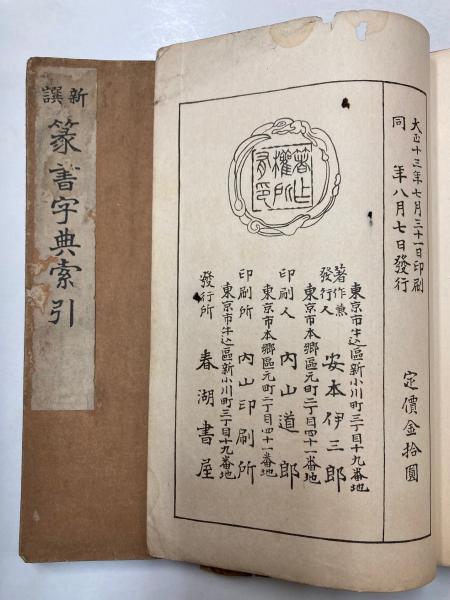 新譔
篆書字典索引
大正十三年七月三十一日印刷
同　年八月七日發行
定價金拾圓
東京市牛込區新小川町三丁目十九番地
著作兼發行人　安本伊三郎
東京市本郷區元町二丁目四十一番地
印刷人　内山道郎
東京市本郷區元町二丁目四十一番地
印刷所　内山印刷所
東京市牛込區新小川町三丁目十九番地
發行所　春湖書屋